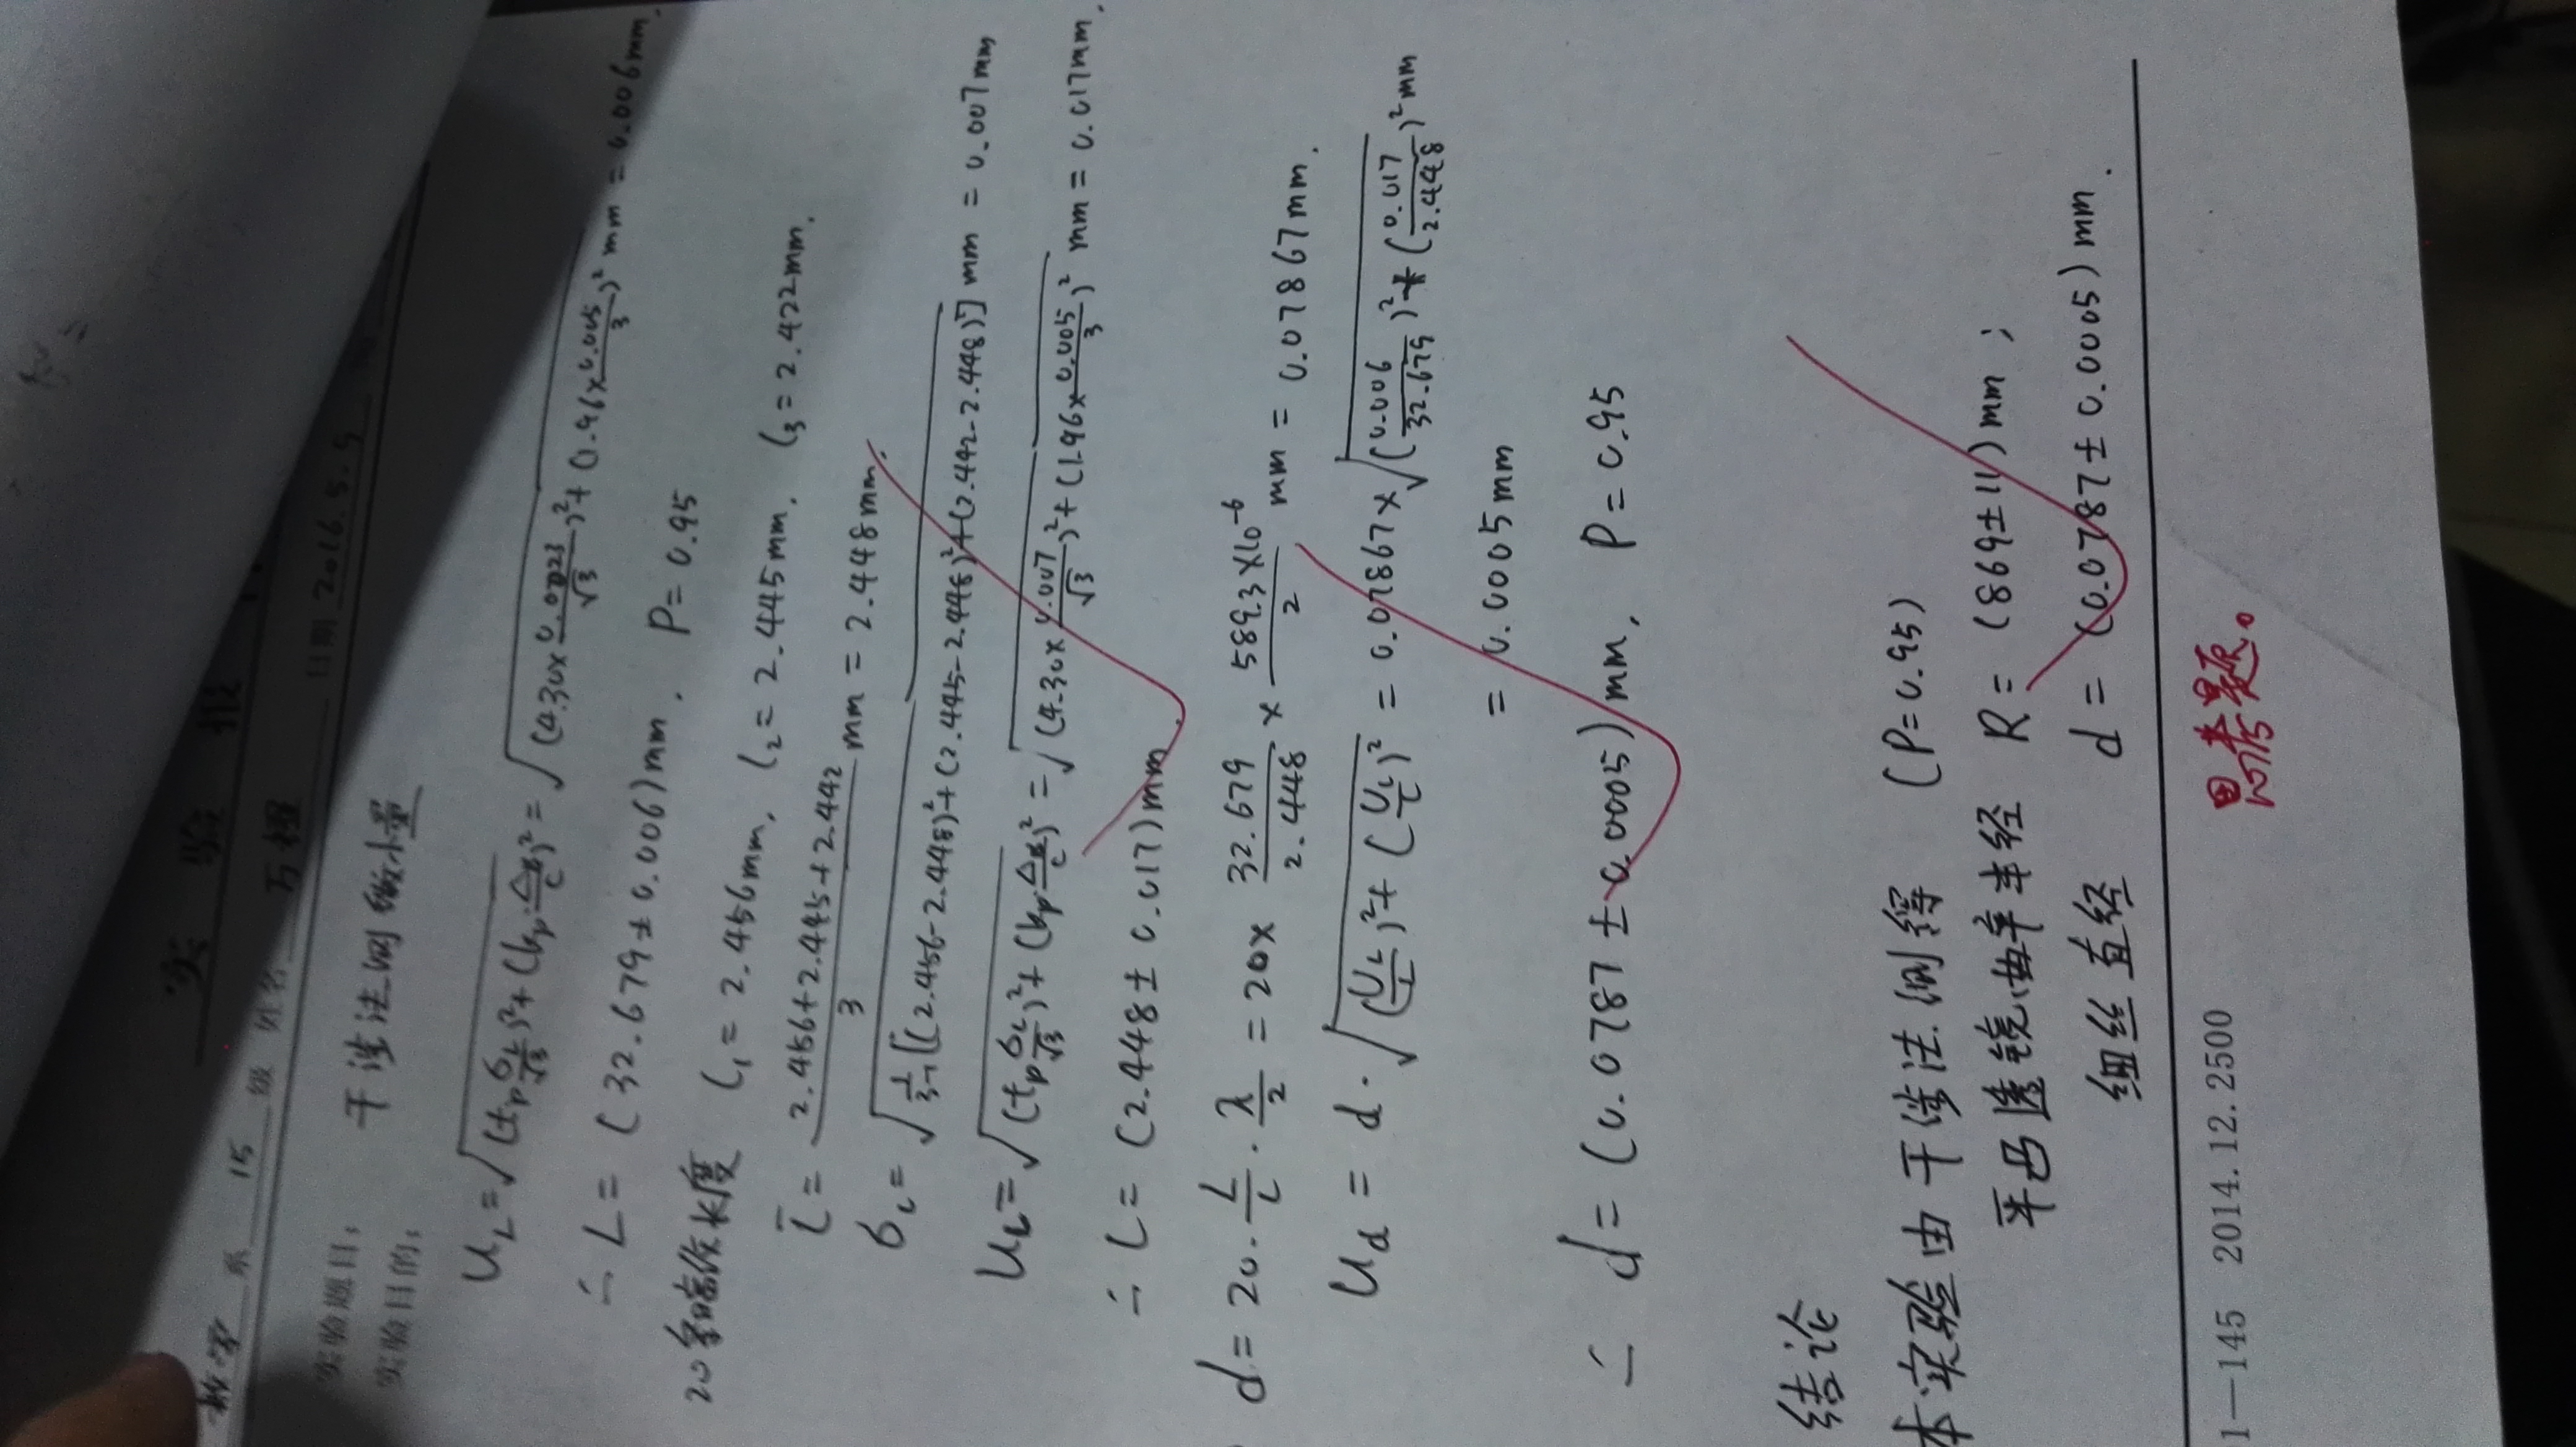 实 验 报
数学 系 15 级 姓名 万橙 日期 2016.5.5
实验题目: 干涉法测微小量
实验目的:
U_L=√((t_P σ_L/√3)²+(k_P·Δ_B/C)²)=√((4.30×0.0023/√3)²+(1.96×0.005/3)²) mm=0.006mm.
∴ L=(32.679±0.006)mm, P=0.95
20条暗纹长度 l₁=2.456mm, l₂=2.445mm, l₃=2.422mm.
l̄=(2.456+2.445+2.442)/3 mm=2.448mm.
σ_l=√(1/(3-1)[(2.456-2.448)²+(2.445-2.448)²+(2.442-2.448)²]) mm=0.007mm
U_l=√((t_P σ_l/√3)²+(k_P·Δ_B/C)²)=√((4.30×0.007/√3)²+(1.96×0.005/3)²) mm=0.017mm.
∴ l=(2.448±0.017)mm.
d=20·L/l·λ/2=20×32.679/2.448×5893×10⁻⁶/2 mm=0.07867mm.
U_d=d·√((U_L/L)²+(U_l/l)²)=0.07867×√((0.006/32.679)²+(0.017/2.448)²) mm
=0.0005mm
∴ d=(0.0787±0.0005)mm, P=0.95
结论
本实验由干涉法测得 (P=0.95)
平凸透镜曲率半径 R=(869±11)mm;
细丝直径 d=(0.0787±0.0005)mm.
思考题。
1—145 2014.12.2500